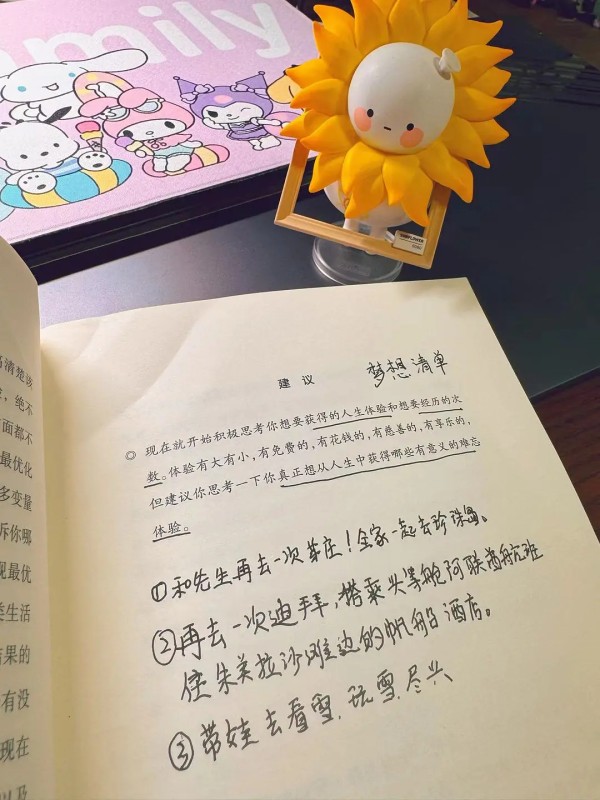 amily
建 议
梦想清单
现在就开始积极思考你想要获得的人生体验和想要经历的次
数。体验有大有小，有免费的，有花钱的，有慈善的，有享乐的，
但建议你思考一下你真正想从人生中获得哪些有意义的难忘
体验。
①和先生再去一次芽庄！全家一起去珍珠岛。
②再去一次迪拜，搭乘头等舱阿联酋航班
住朱美拉沙滩边的帆船酒店。
③带娃去看雪、玩雪、尽兴
高清楚该
绝不
面都不
最优化
多变量
诉你哪
现最优
类生活
结果的
有没
现在
以及